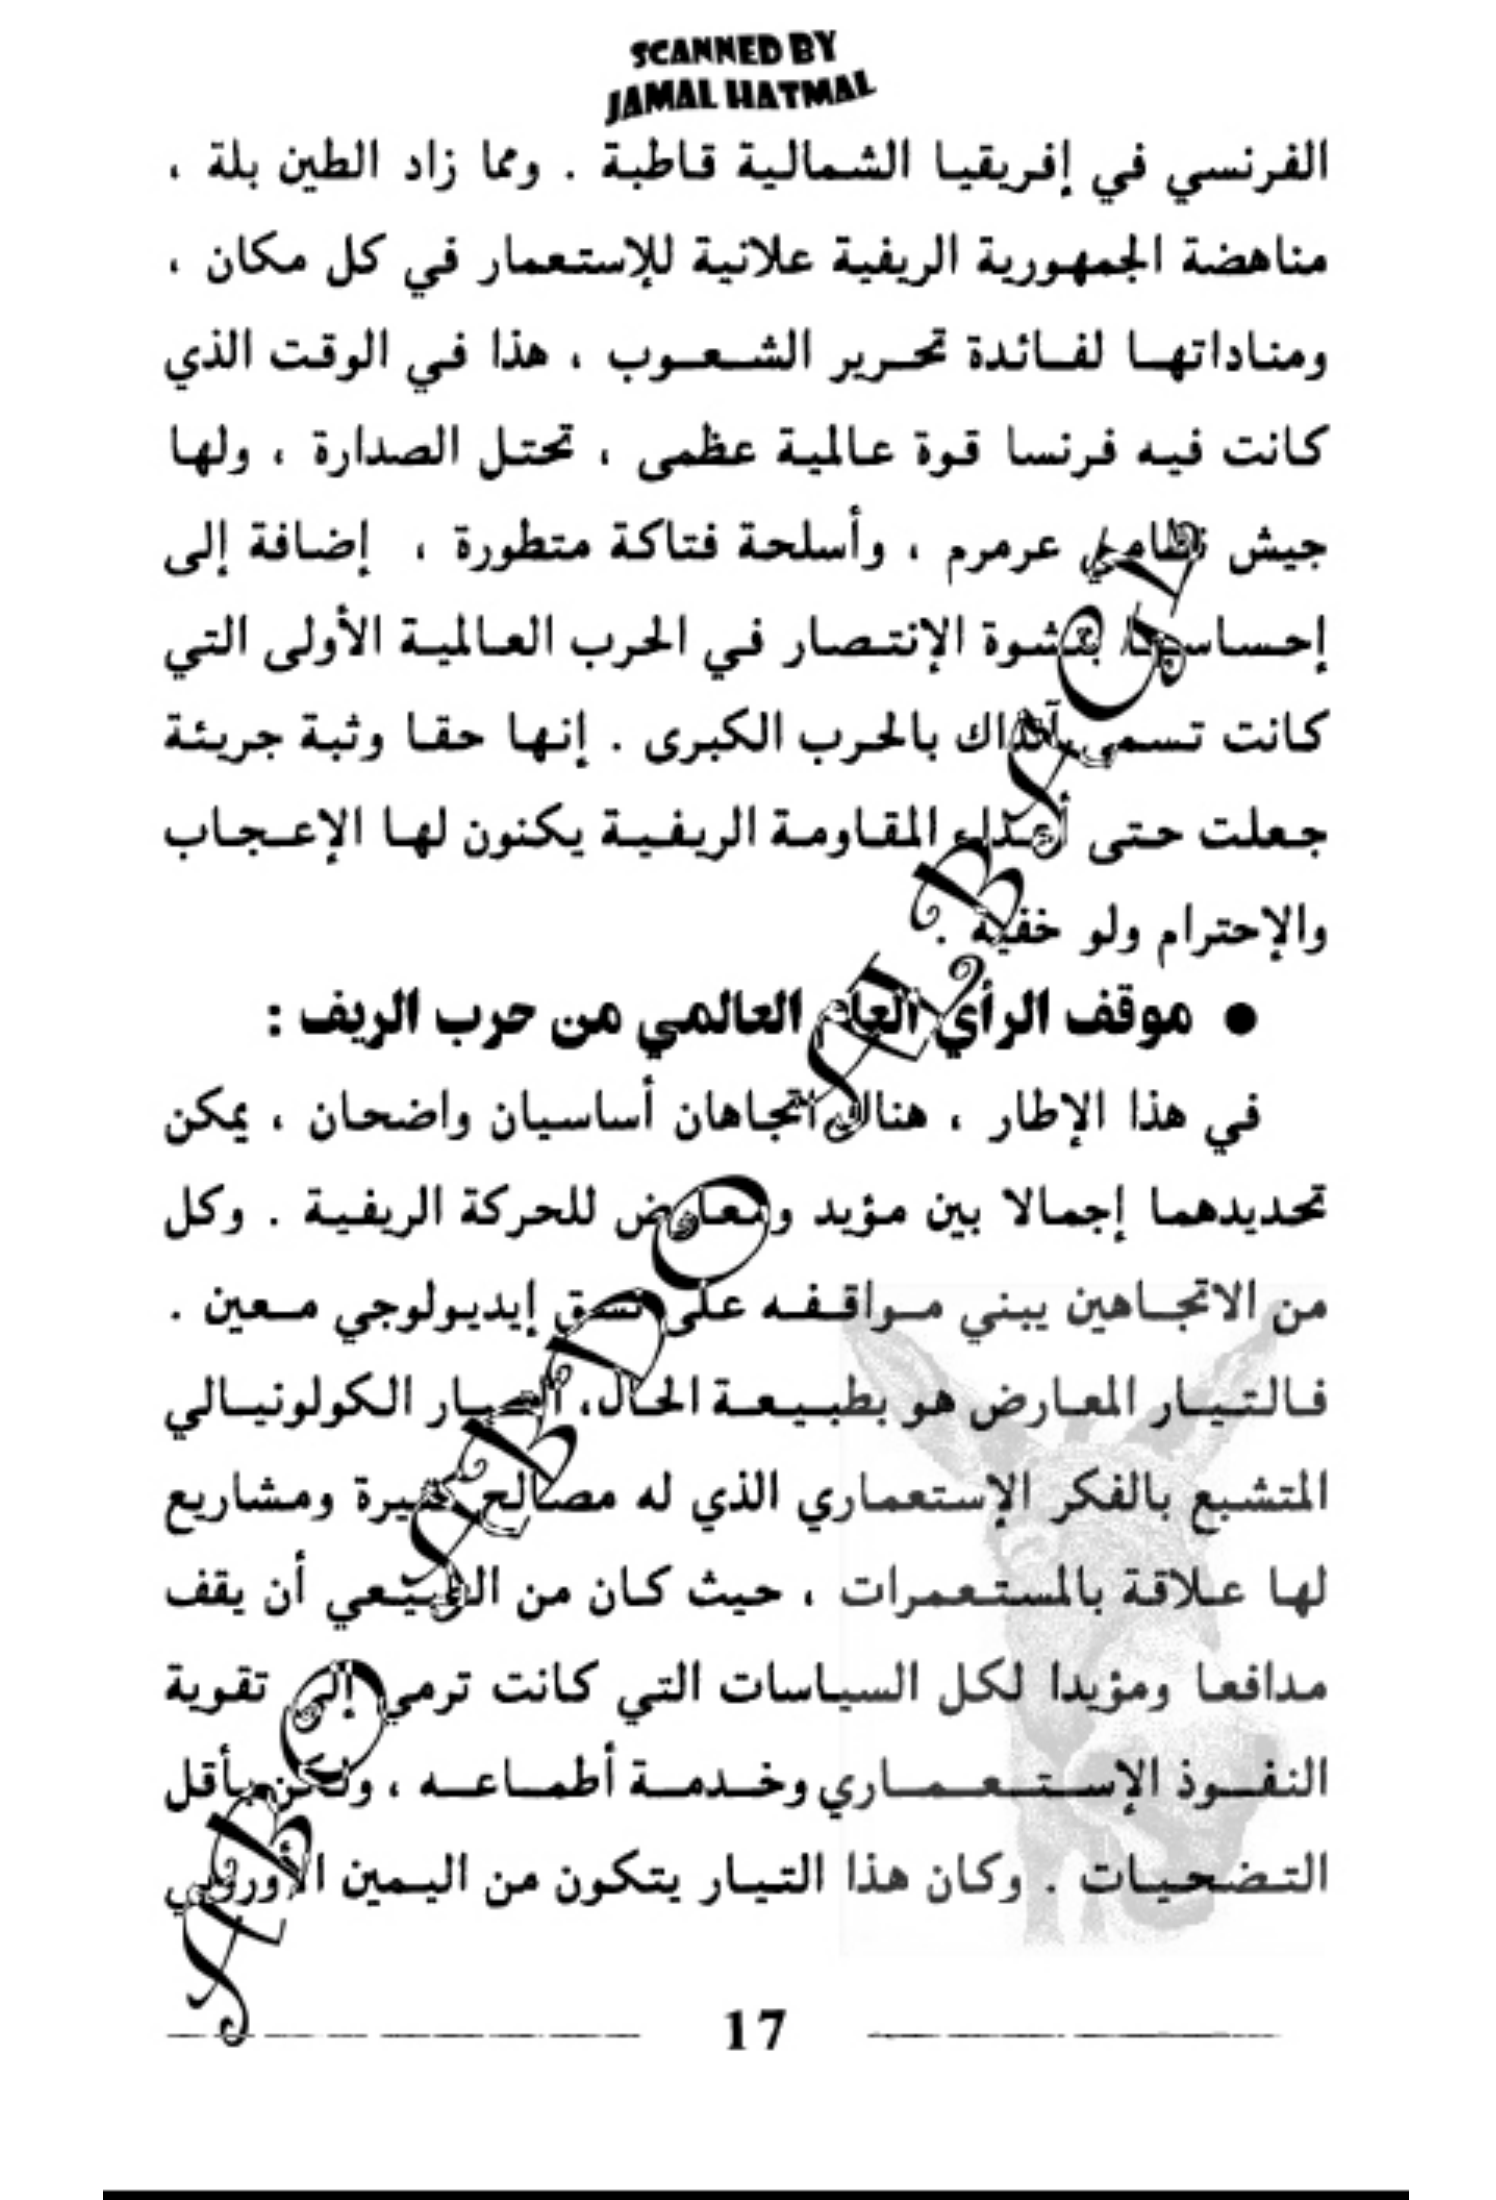 SCANNED BY
JAMAL HATMAL
الفرنسي في إفريقيا الشمالية قاطبة . ومما زاد الطين بلة ،
مناهضة الجمهورية الريفية علانية للإستعمار في كل مكان ،
ومناداتها لفائدة تحرير الشعوب ، هذا في الوقت الذي
كانت فيه فرنسا قوة عالمية عظمى ، تحتل الصدارة ، ولها
جيش نظامي عرمرم ، وأسلحة فتاكة متطورة ، إضافة إلى
إحساسها بنشوة الإنتصار في الحرب العالمية الأولى التي
كانت تسمى آنذاك بالحرب الكبرى . إنها حقا وثبة جريئة
جعلت حتى أعداء المقاومة الريفية يكنون لها الإعجاب
والإحترام ولو خفية .
● موقف الرأي العام العالمي من حرب الريف :
في هذا الإطار ، هناك اتجاهان أساسيان واضحان ، يمكن
تحديدهما إجمالا بين مؤيد ومعارض للحركة الريفية . وكل
من الاتجاهين يبني مواقفه على نسق إيديولوجي معين .
فالتيار المعارض هو بطبيعة الحال، التيار الكولونيالي
المتشبع بالفكر الإستعماري الذي له مصالح كثيرة ومشاريع
لها علاقة بالمستعمرات ، حيث كان من الطبيعي أن يقف
مدافعا ومؤيدا لكل السياسات التي كانت ترمي إلى تقوية
النفوذ الإستعماري وخدمة أطماعه ، ولكن بأقل
التضحيات . وكان هذا التيار يتكون من اليمين الأوروبي
17